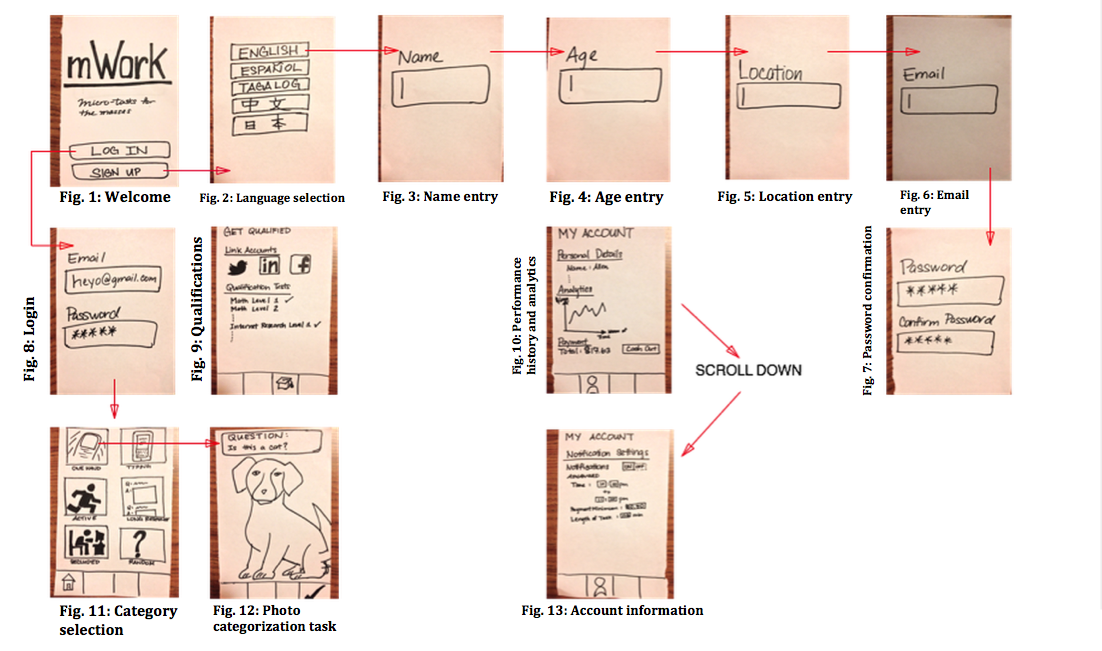 mWork
micro-tasks for
the masses
LOG IN
SIGN UP
Fig. 1: Welcome
ENGLISH
ESPAÑOL
TAGALOG
中文
日本
Fig. 2: Language selection
Name
Fig. 3: Name entry
Age
Fig. 4: Age entry
Location
Fig. 5: Location entry
Email
Fig. 6: Email
entry
Email
heyo@gmail.com
Password
*****
Fig. 8: Login
GET QUALIFIED
Link Accounts
in f
Qualification Tests
Math Level 1 ✓
Math Level 2
Internet Research Level 1 ✓
Fig. 9: Qualifications
MY ACCOUNT
Personal Details
Name: Alex
Analytics
Time
Payment
Total: $17.63 Cash Out
Fig. 10: Performance
history and analytics
SCROLL DOWN
Password
*****
Confirm Password
*****
Fig. 7: Password confirmation
ONE HAND
TYPING
ACTIVE
?
RANDOM
Fig. 11: Category
selection
QUESTION:
Is this a cat?
Fig. 12: Photo
categorization task
MY ACCOUNT
Notification Settings
Notifications
Time:
to
Payment Minimum:
Length of Task: min
Fig. 13: Account information